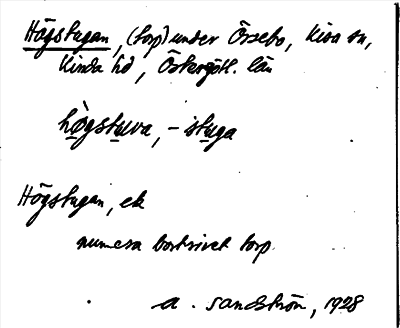 Högstugan, (torp) under Örsebo, Kisa sn,
Kinda hd, Östergötl. län
hògstuva, -stuga
Högstugan, ek
numera bortrivet torp.
A. Sandström, 1928